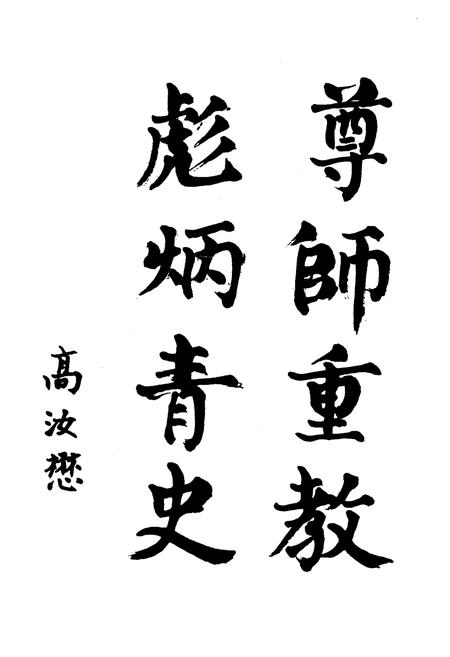 尊師重教
彪炳青史
高汝懋